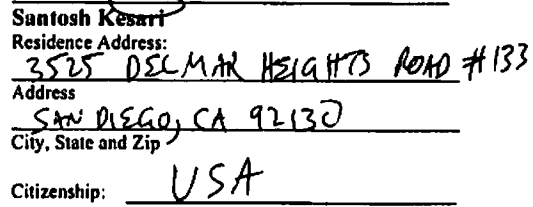 Santosh Kesari
Residence Address:
3525 DEL MAR HEIGHTS ROAD #133
Address
SAN DIEGO, CA 92130
City, State and Zip
Citizenship: USA